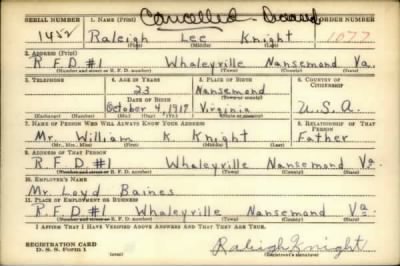 Cancelled
SERIAL NUMBER 1. NAME (Print) ORDER NUMBER
Raleigh Lee Knight 1077
(First) (Middle) (Last)
2. ADDRESS (Print)
R.F.D #1 Whaleyville Nansemond Va.
(Number and street or R. F. D. number) (Town) (County) (State)
3. TELEPHONE 4. AGE IN YEARS 5. PLACE OF BIRTH 6. COUNTRY OF CITIZENSHIP
23 Nansemond
(Town or county)
DATE OF BIRTH
October 4, 1917 Virginia U.S.A.
(Mo.) (Day) (Yr.) (State or country)
7. NAME OF PERSON WHO WILL ALWAYS KNOW YOUR ADDRESS 8. RELATIONSHIP OF THAT PERSON
Mr. William K. Knight Father
(Mr., Mrs., Miss) (First) (Middle) (Last)
9. ADDRESS OF THAT PERSON
R.F.D #1 Whaleyville Nansemond Va.
(Number and street or R. F. D. number) (Town) (County) (State)
10. EMPLOYER'S NAME
Mr. Loyd Baines
11. PLACE OF EMPLOYMENT OR BUSINESS
R.F.D #1 Whaleyville Nansemond Va
(Number and street or R. F. D. number) (Town) (County) (State)
I AFFIRM THAT I HAVE VERIFIED ABOVE ANSWERS AND THAT THEY ARE TRUE.
REGISTRATION CARD
D. S. S. Form 1 Raleigh Knight
(Registrant's signature)